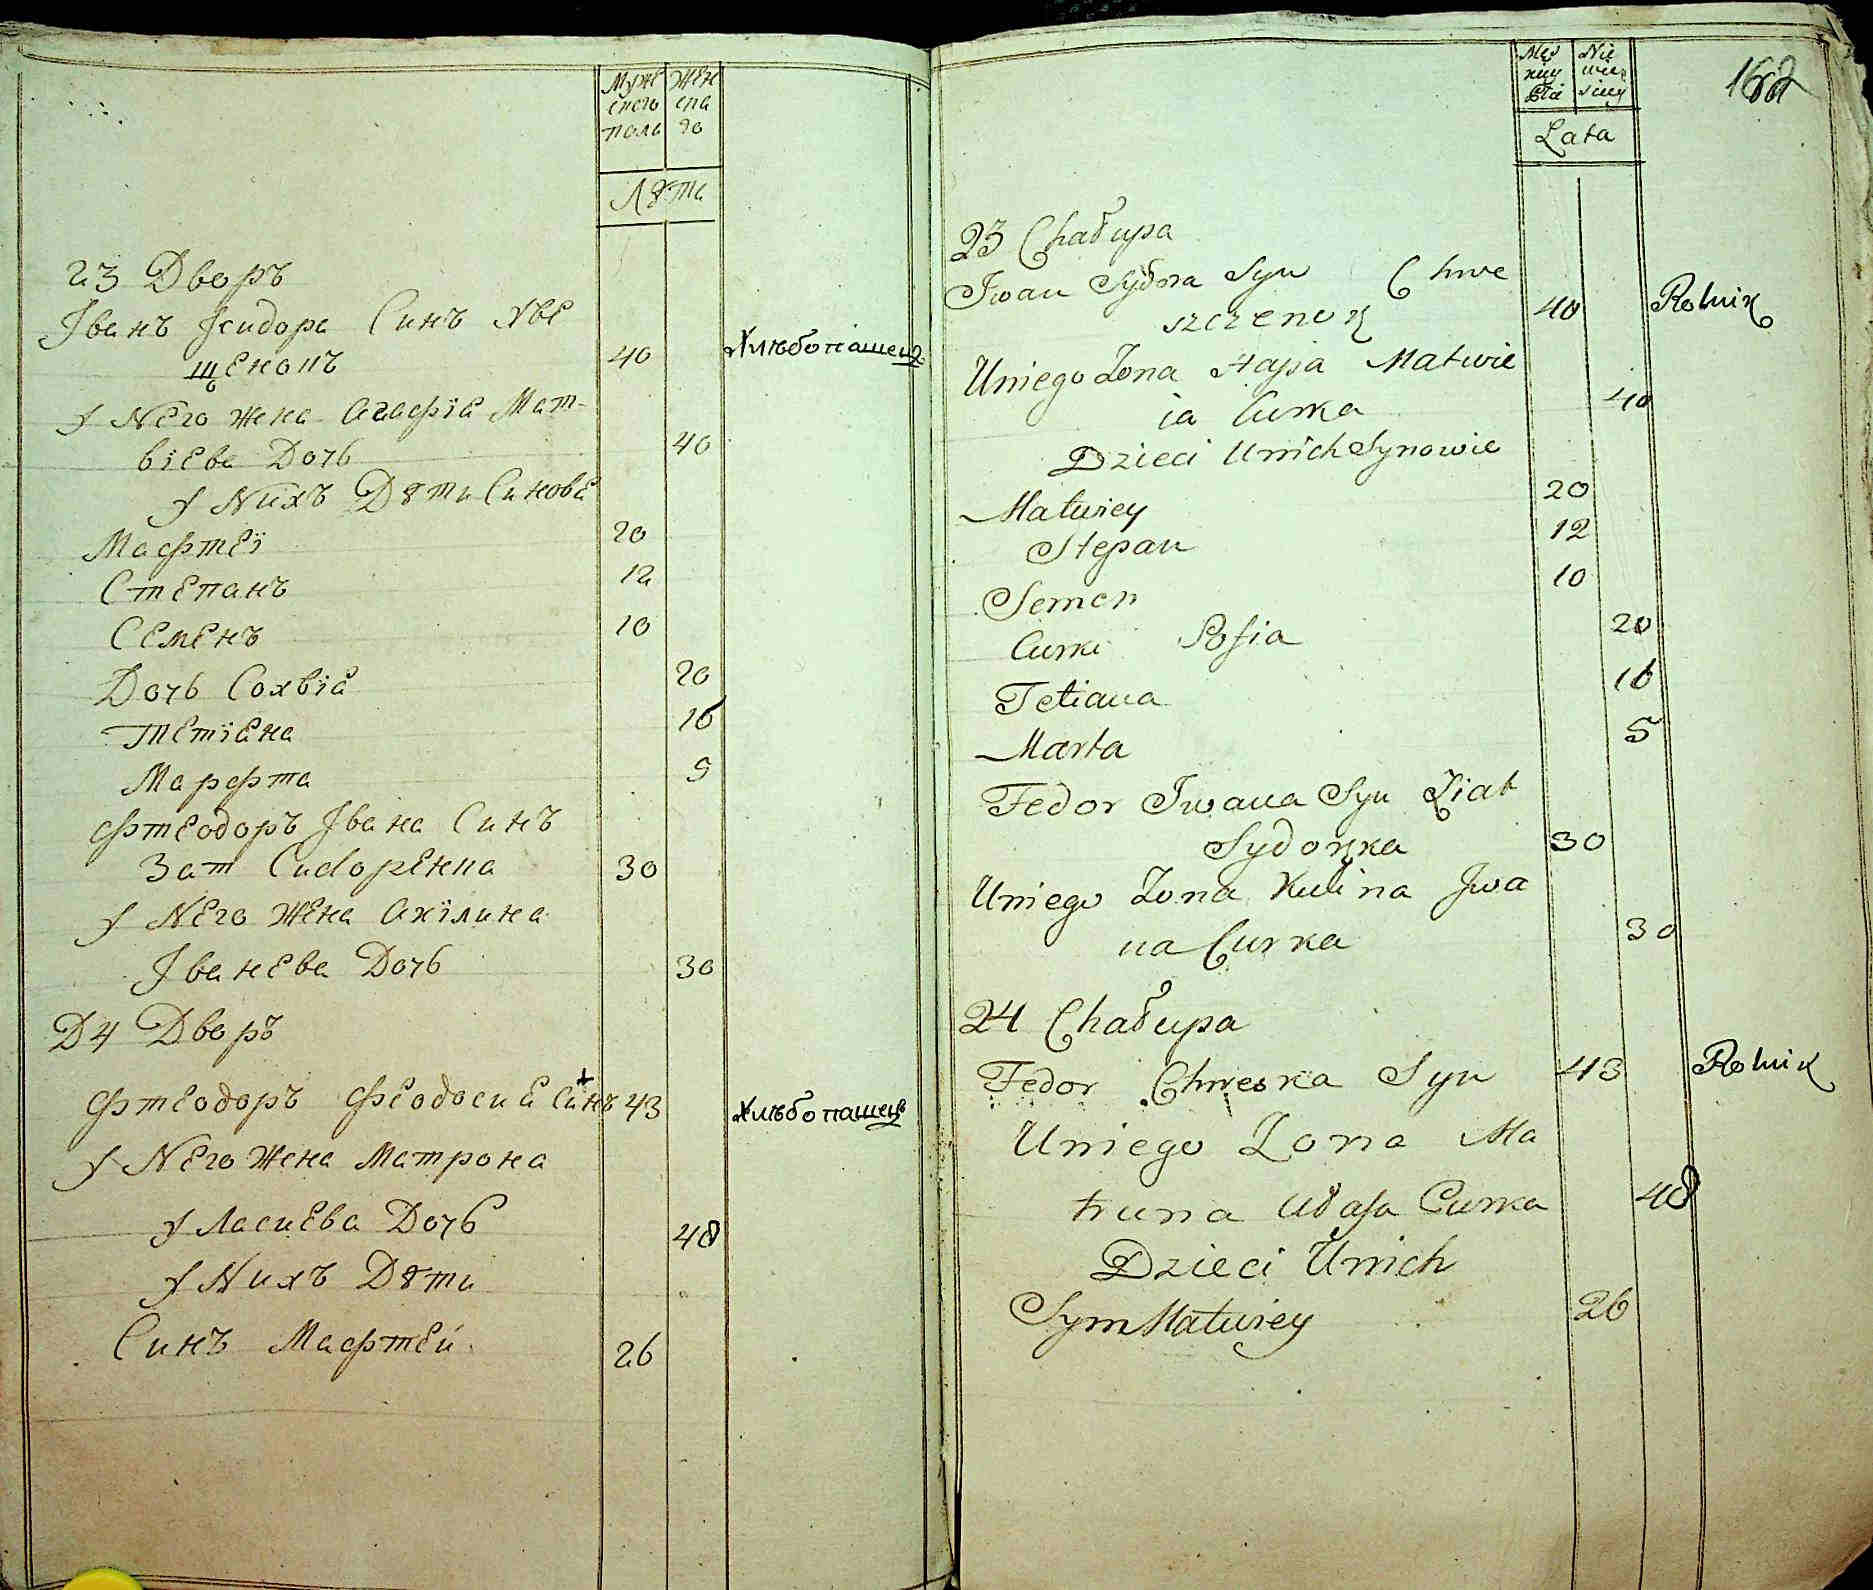 Муже
ского
полъ
Жен
ска
го
Лѣти
23 Дворъ
Іванъ Ісидора Синъ Хве
щенокъ 40 Хлѣбопашец
У Него Жена Агафіа Мат-
віева Дочь 40
У Нихъ Дѣти Синове
Мафтеї 20
Степанъ 12
Семенъ 10
Дочь Сохвіа 20
Тетіана 16
Марфта 5
Фтеодоръ Івана Синъ
Зат Сидоренка 30
У Него Жена Акілина
Іванева Дочь 30
Д4 Дворъ
Фтеодоръ Феодосиа Синъ 43 Хлѣбопашецъ
У Него Жена Матрона
Уласиева Дочь 48
У Нихъ Дѣти
Синъ Мафтей 26
162
Męz
kuy
Płci
Nie
wie
sciey
Lata
23 Chałupa
Iwan Sydora Syn Chwe
szczenok 40 Rolnik
Uniego Zona Hapa Matwie
ia Curka 40
Dzieci Unich Synowie
Matwiey 20
Stepan 12
Semen 10
Curki Sofia 20
Tetiana 16
Marta 5
Fedor Iwana Syn Ziat
Sydorka 30
Uniego Zona Kulina Iwa
na Curka 30
24 Chałupa
Fedor Chweska Syn 43 Rolnik
Uniego Zona Ma
truna Ułasa Curka 48
Dzieci Unich
Syn Matwiey 26